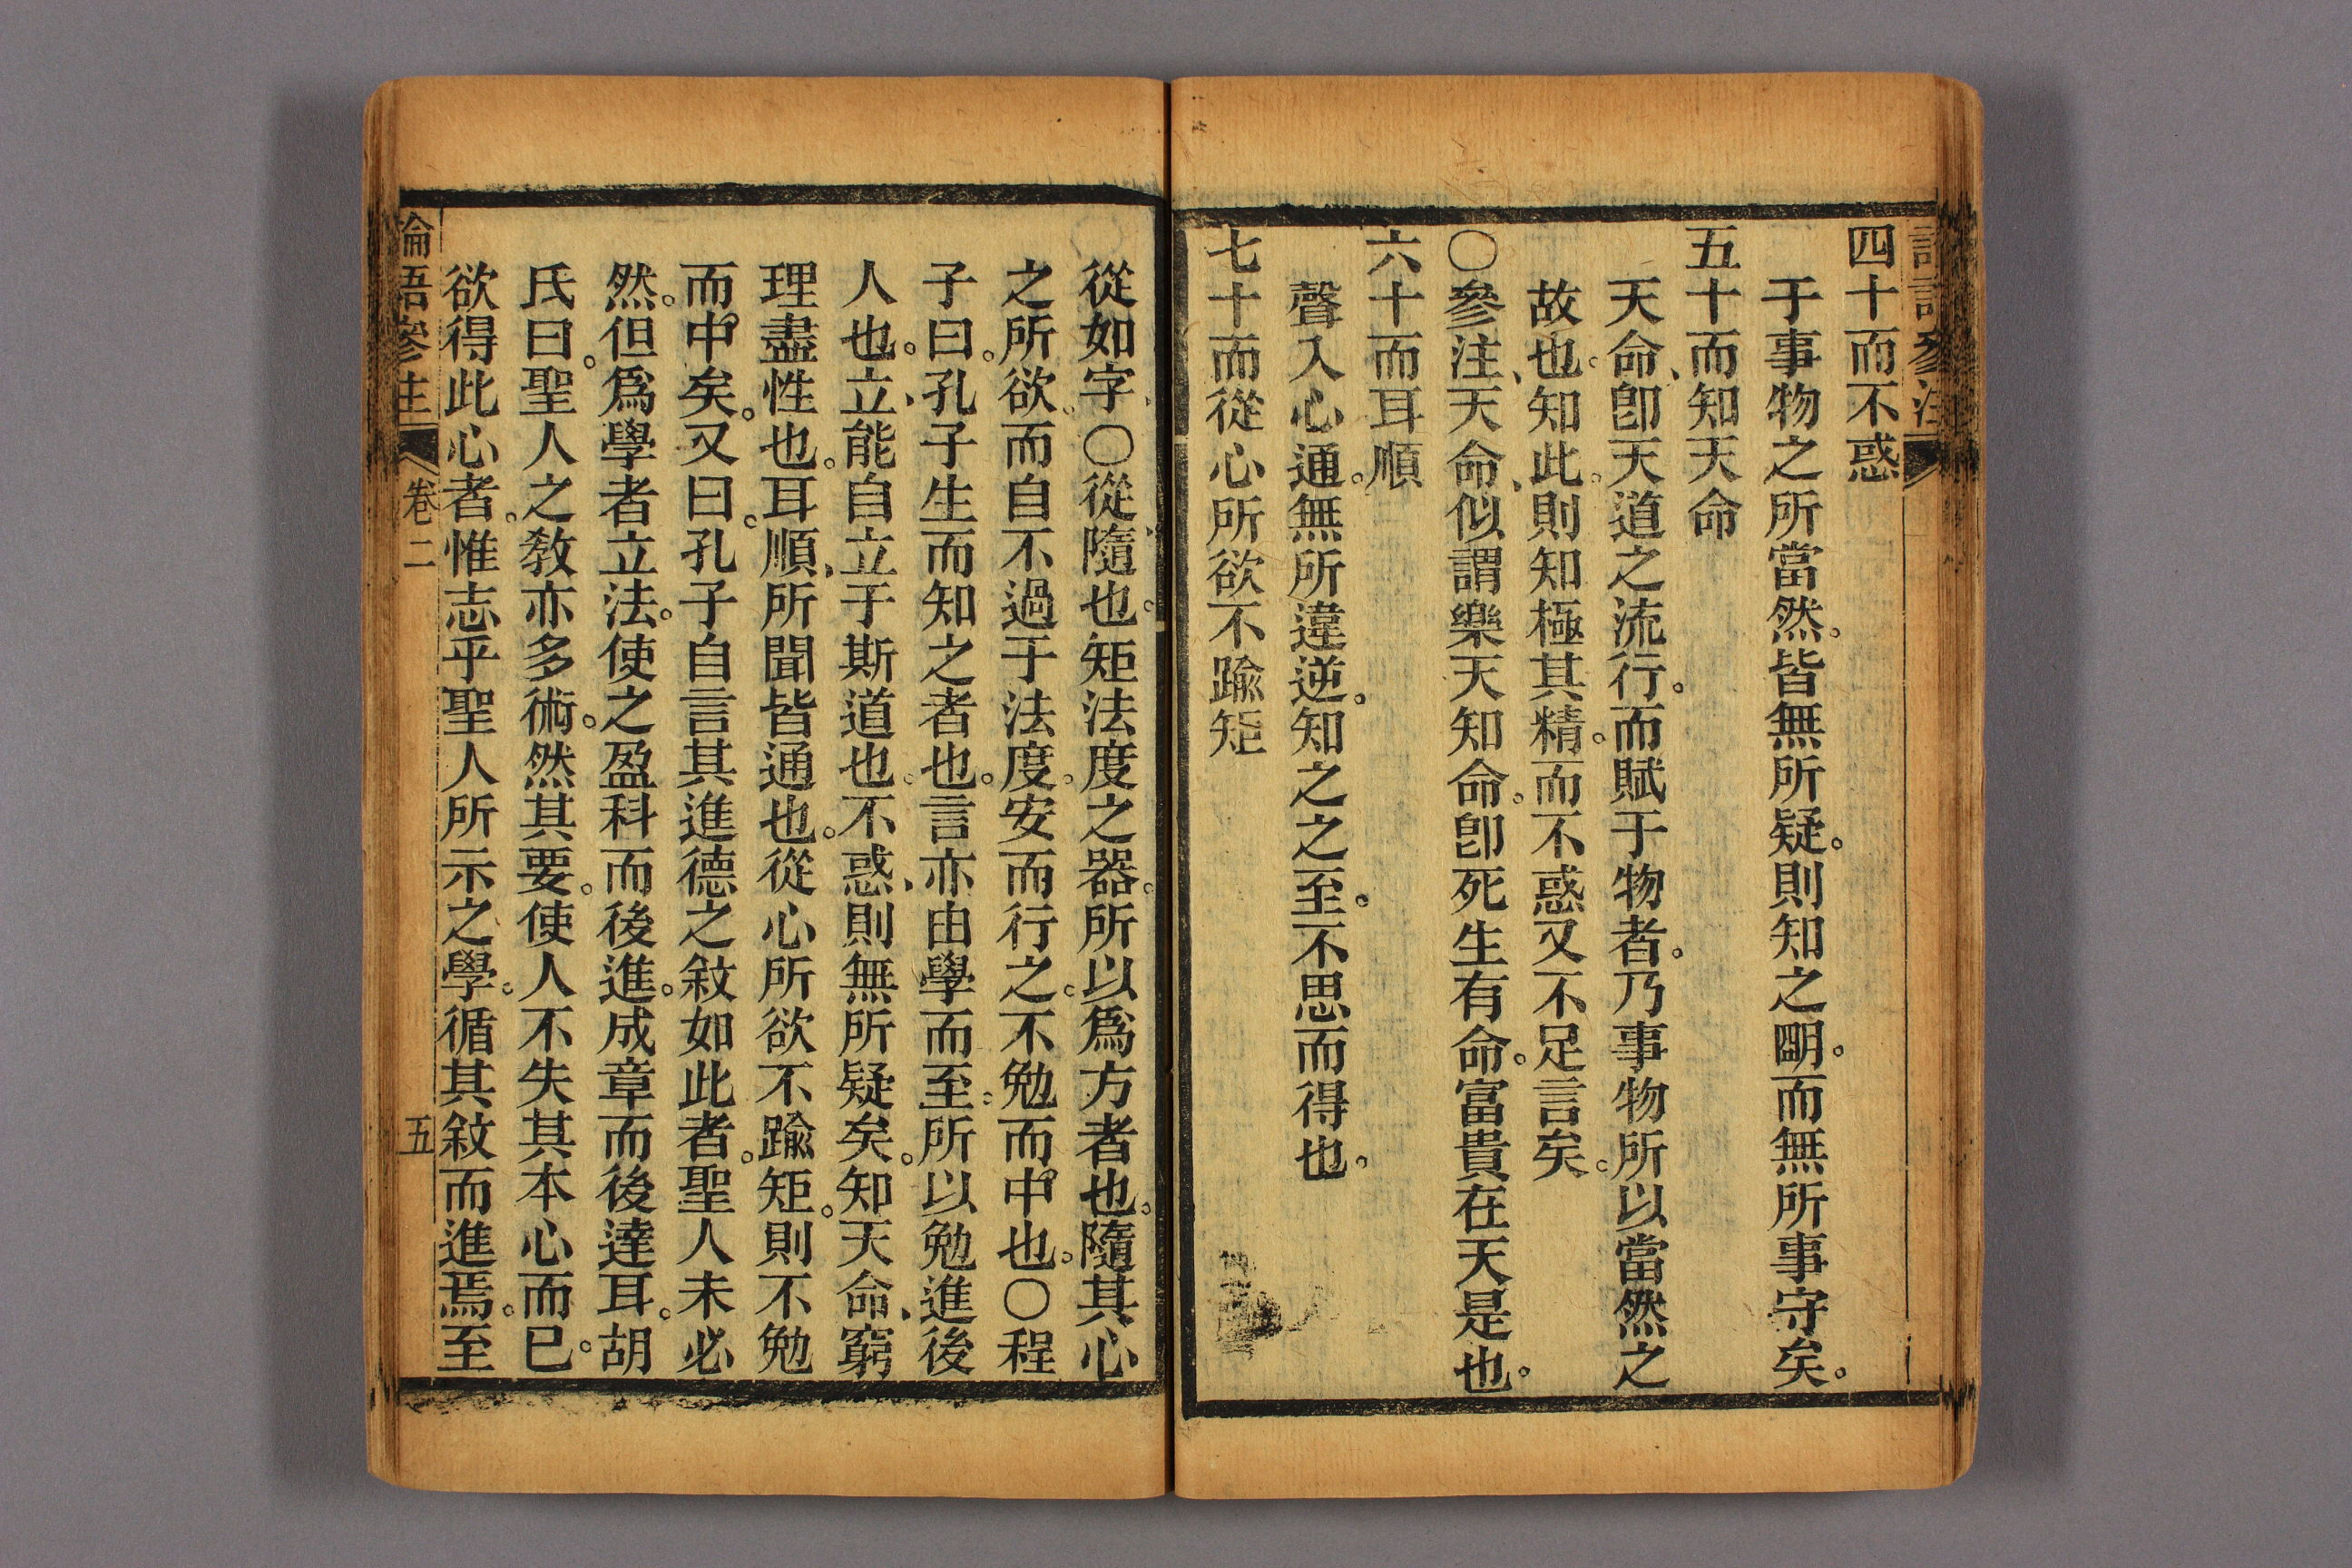 四十而不惑
于事物之所當然。皆無所疑。則知之朙。而無所事守矣。
五十而知天命
天命、卽天道之流行。而賦于物者。乃事物所以當然之
故也。知此。則知極其精。而不惑又不足言矣。
〇參注、天命、似謂樂天知命。卽死生有命。富貴在天是也。
六十而耳順
聲入心通。無所違逆。知之之至。不思而得也。
七十而從心所欲不踰矩
從如字、〇從、隨也。矩法度之器。所以爲方者也。隨其心
之所欲。而自不過于法度。安而行之。不勉而中也。〇程
子曰。孔子生而知之者也。言亦由學而至。所以勉進後
人也。立、能自立于斯道也。不惑、則無所疑矣。知天命、窮
理盡性也。耳順、所聞皆通也。從心所欲不踰矩。則不勉
而中矣。又曰。孔子自言其進德之敘如此者。聖人未必
然。但爲學者立法。使之盈科而後進。成章而後達耳。胡
氏曰。聖人之敎亦多術。然其要。使人不失其本心而已。
欲得此心者。惟志乎聖人所示之學。循其敘而進焉。至
論語參注 卷二 五